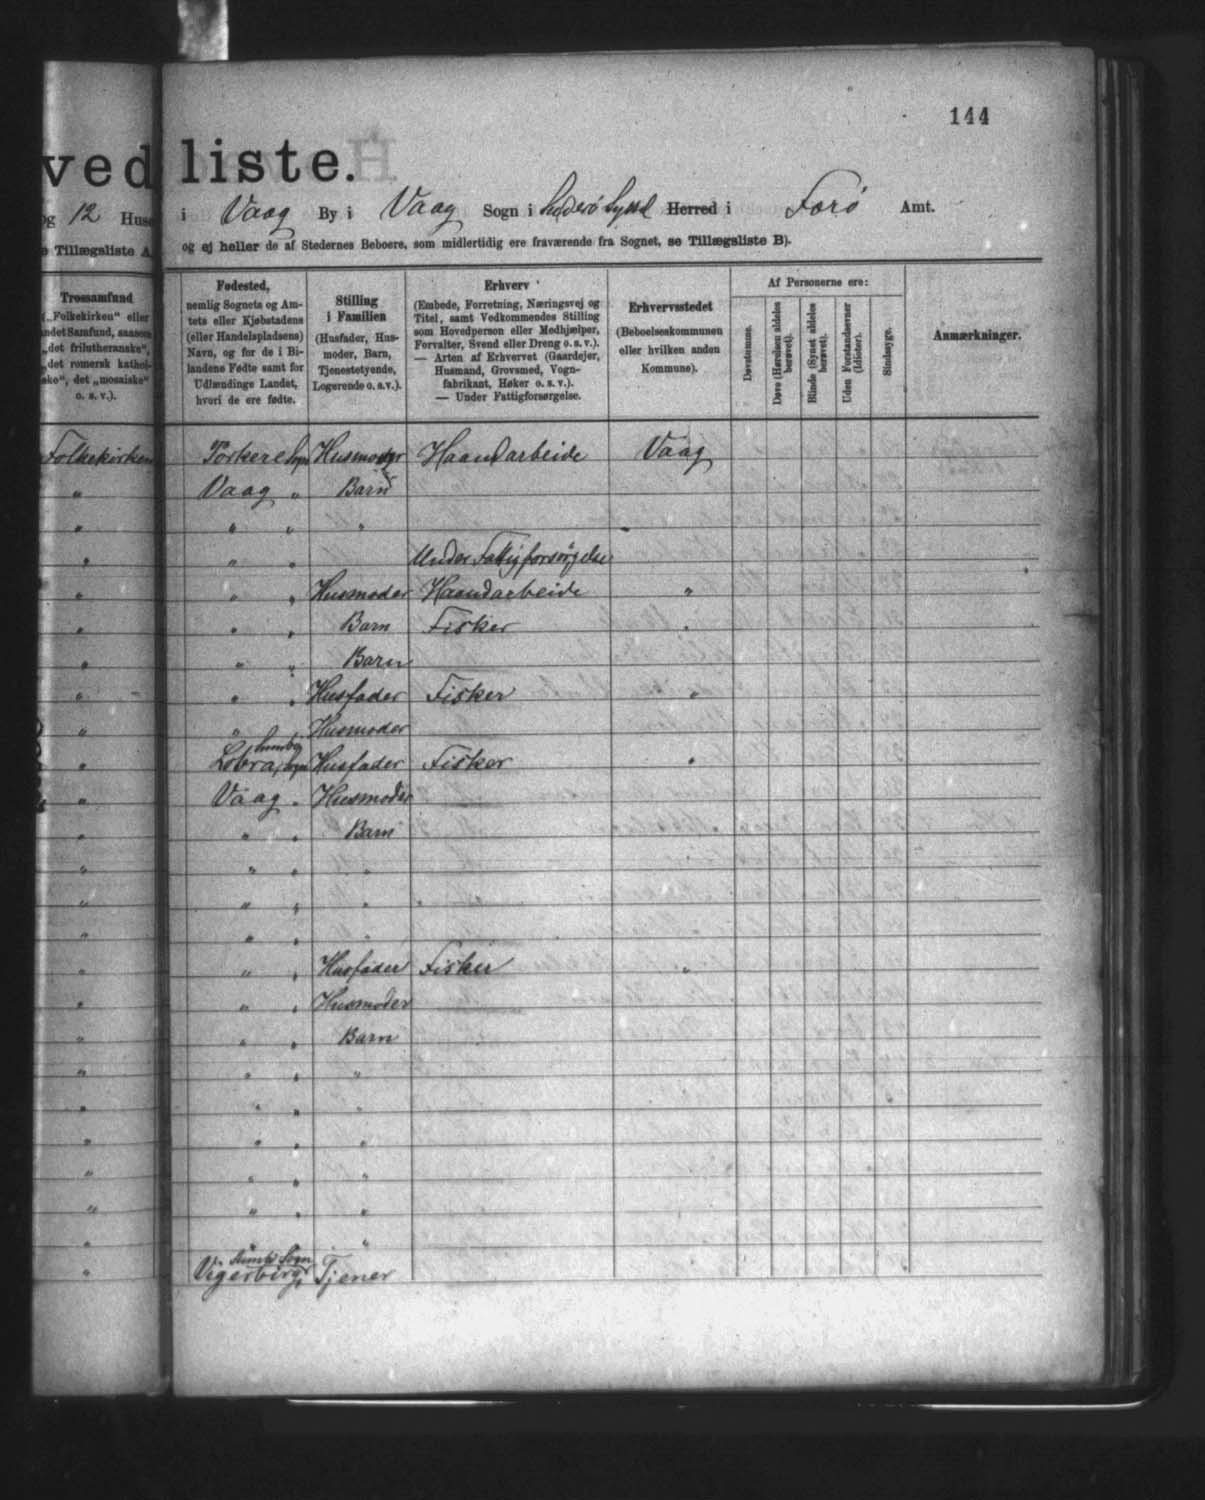 144
ved liste.
og 12 Huse i Vaag By i Vaag Sogn i Suderö Syssel Herred i Forö Amt.
e Tillægsliste A og ej heller de af Stedernes Beboere, som midlertidig ere fraværende fra Sognet, se Tillægsliste B).
Trossamfund
(„Folkekirken“ eller
andet Samfund, saasom
„det frilutheranske“,
„det romersk kathol-
ske“, det „mosaiske“
o. s. v.).
Fødested,
nemlig Sognets og Am-
tets eller Kjøbstadens
(eller Handelspladsens)
Navn, og for de i Bi-
landene Fødte samt for
Udlændinge Landet,
hvori de ere fødte.
Stilling
i Familien
(Husfader, Hus-
moder, Barn,
Tjenestetyende,
Logerende o. s. v.).
Erhverv
(Embede, Forretning, Næringsvej og
Titel, samt Vedkommendes Stilling
som Hovedperson eller Medhjælper,
Forvalter, Svend eller Dreng o. s. v.).
— Arten af Erhvervet (Gaardejer,
Husmand, Grovsmed, Vogn-
fabrikant, Høker o. s. v.).
— Under Fattigforsørgelse.
Erhvervsstedet
(Beboelseskommunen
eller hvilken anden
Kommune).
Af Personerne ere:
Døvstumme.
Døve (Hørelsen aldeles
berøvet).
Blinde (Synet aldeles
berøvet).
Uden Forstandsevner
(Idioter).
Sindssyge.
Anmærkninger.
Folkekirken Porkere Sogn Husmoder Haandarbeide Vaag
" Vaag " Barn
" " " "
" " " Under Fattigforsørgelse
" " " Husmoder Haandarbeide "
" " " Barn Fisker "
" " " Barn
" " " Husfader Fisker "
" " " Husmoder
" Lobra, Sogn Husfader Fisker "
" Vaag " Husmoder
" " " Barn
" " " "
" " " "
" " " "
" " " Husfader Fisker "
" " " Husmoder
" " " Barn
" " " "
" " "
" " " "
" " " "
" " " "
" " "
" Sogn Tjener